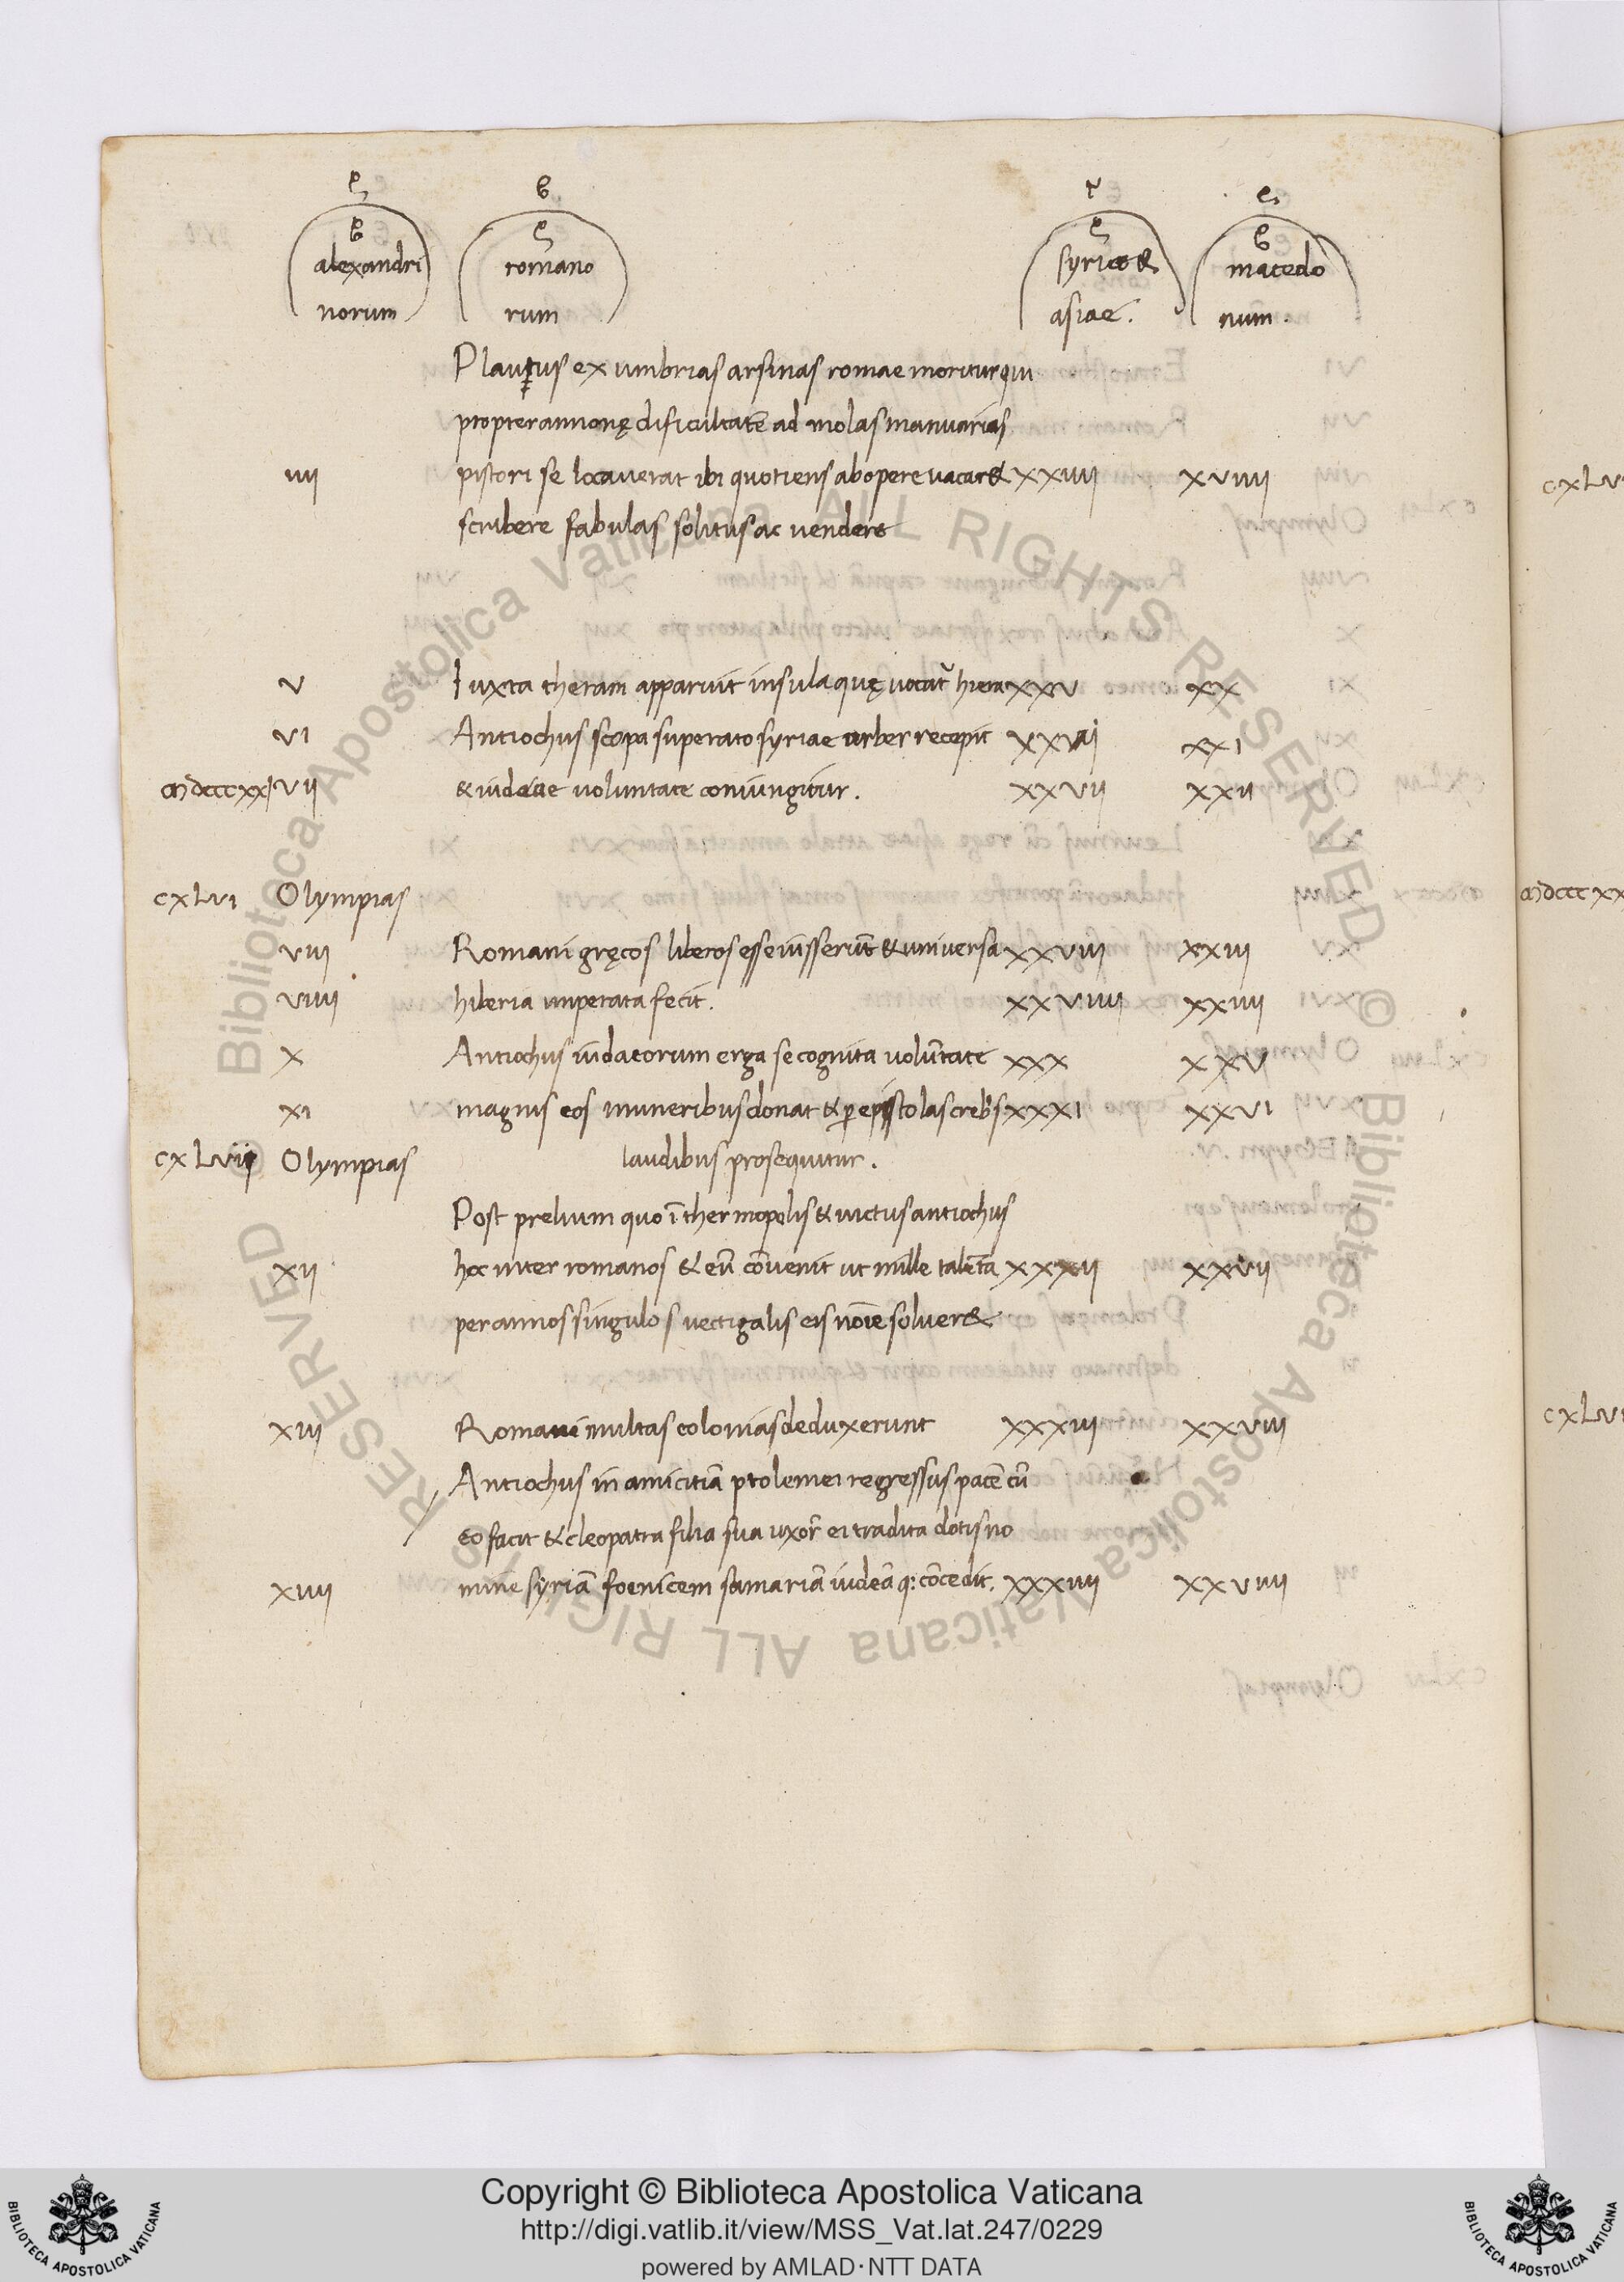 alexandri romano syriae & macedo
norum rum asiae. num.
Plautus ex umbrias arsinas romae moritur qui
propter annonę dificultatē ad molas manuarias
iiii pistori se locauerat ibi quotiens ab opere uacar& xxiiii xviiii
scribere fabulas solitus ac uendere
v Iuxta theram apparuit insula quę uocat̃ hiera xxv xx
vi Antiochus scopa superato syriae urber recepit xxvi xxi
vii & iudaeae uoluntate coniungitur. xxvii xxii
cxLvi Olympias
viii Romani gręcos liberos esse iusserunt & universa xxviii xxiii
viiii hiberia imperata fecit. xxviiii xxiiii
x Antiochus iudaeorum erga se cognita voluntate xxx xxv
xi magnis eos muneribus donat & p epistolas crebs xxxi xxvi
cxLvii Olympias laudibus prosequitur.
Post prelium quo ī thermopolis & uictus antiochus
xii hoc inter romanos & eū cōvenit ut mille talēta xxxii xxvii
per annos singulos vectigalis eis noīe soluer&
xiii Romani multas colonias deduxerunt xxxiii xxviii
Antiochus in amicitiā ptolemei regressus pacē cū
eo facit & cleopatra filia sua uxor̄ ei tradita dotis no
xiiii mine syriā foenicem samariā iudeā q: cōcedit. xxxiiii xxviiii
Biblioteca Apostolica Vaticana ALL RIGHTS RESERVED ©
Biblioteca Apostolica Vaticana ALL RIGHTS RESERVED ©
Copyright © Biblioteca Apostolica Vaticana
http://digi.vatlib.it/view/MSS_Vat.lat.247/0229
powered by AMLAD·NTT DATA
BIBLIOTECA APOSTOLICA VATICANA
BIBLIOTECA APOSTOLICA VATICANA